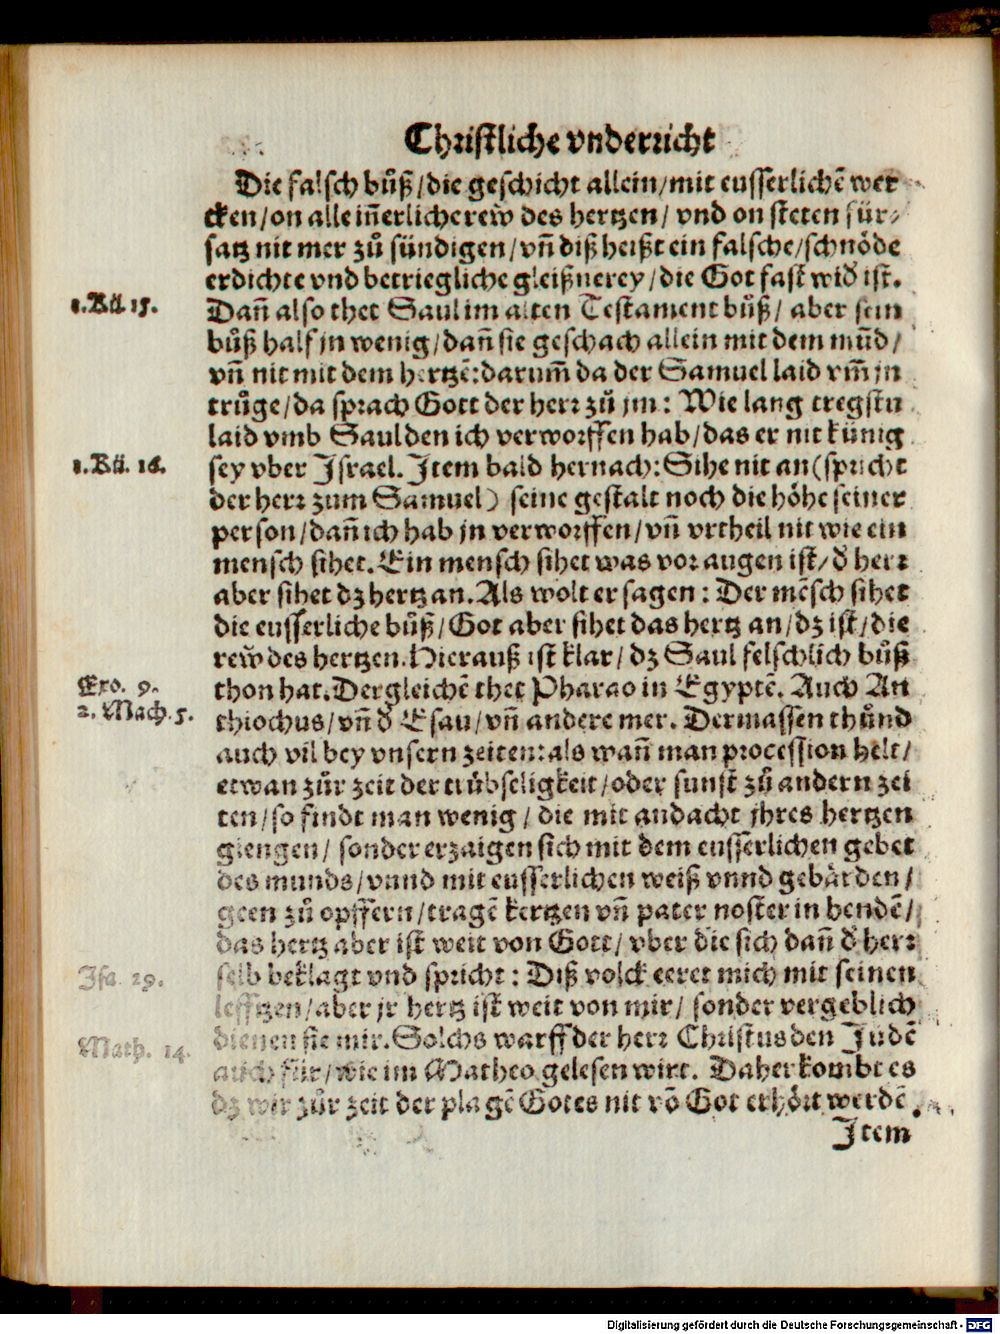 Christliche vnderricht
Die falsch bůß/die geschicht allein/mit eusserlichē wer
cken/on alle iñerliche rew des hertzen/ vnd on steten für-
satz nit mer zů sündigen/vñ diß heißt ein falsche/schnöde
erdichte vnd betriegliche gleißnerey/die Got fast wid̕ ist.
1.Kü. 15.
Dañ also thet Saul im alten Testament bůß/ aber sein
bůß half jn wenig/dañ sie geschach allein mit dem mūd/
vñ nit mit dem hertzē:darum̃ da der Samuel laid vm̃ jn
trůge/da sprach Gott der herr zů jm: Wie lang tregstu
laid vmb Saul den ich verworffen hab/das er nit künig
1.Kü. 16.
sey vber Israel. Item bald hernach:Sihe nit an(spricht
der herr zum Samuel) seine gestalt noch die höhe seiner
person/dañ ich hab jn verworffen/vñ vrtheil nit wie ein
mensch sihet.Ein mensch sihet was vor augen ist/d̕ herr
aber sihet dz hertz an.Als wolt er sagen: Der mēsch sihet
die eusserliche bůß/Got aber sihet das hertz an/dz ist/die
rew des hertzen.Hierauß ist klar/ dz Saul felschlich bůß
Exo. 9.
thon hat.Dergleichē thet Pharao in Egyptē. Auch An
2. Mach.5.
thiochus/vñ d̕ Esau/vñ andere mer. Dermassen thůnd
auch vil bey vnsern zeiten:als wañ man procession helt/
etwan zůr zeit der trůbseligkeit/oder sunst zů andern zei
ten/so findt man wenig/ die mit andacht jhres hertzen
giengen/ sonder erzaigen sich mit dem eusserlichen gebet
des munds/vnnd mit eusserlichen weiß vnnd gebärden/
geen zů opffern/tragē kertzen vñ pater noster in hendē/
das hertz aber ist weit von Gott/ vber die sich dañ d̕ herr
Isa. 29.
selb beklagt vnd spricht: Diß volck eeret mich mit seinen
lefftzen/aber jr hertz ist weit von mir/ sonder vergeblich
dienen sie mir.Solchs warff der herr Christus den Judē
Math. 14.
auch für/wie im Matheo gelesen wirt. Daher kombt es
dz wir zůr zeit der plagē Gotes nit vō Got erhört werdē.
Item
Digitalisierung gefördert durch die Deutsche Forschungsgemeinschaft - DFG